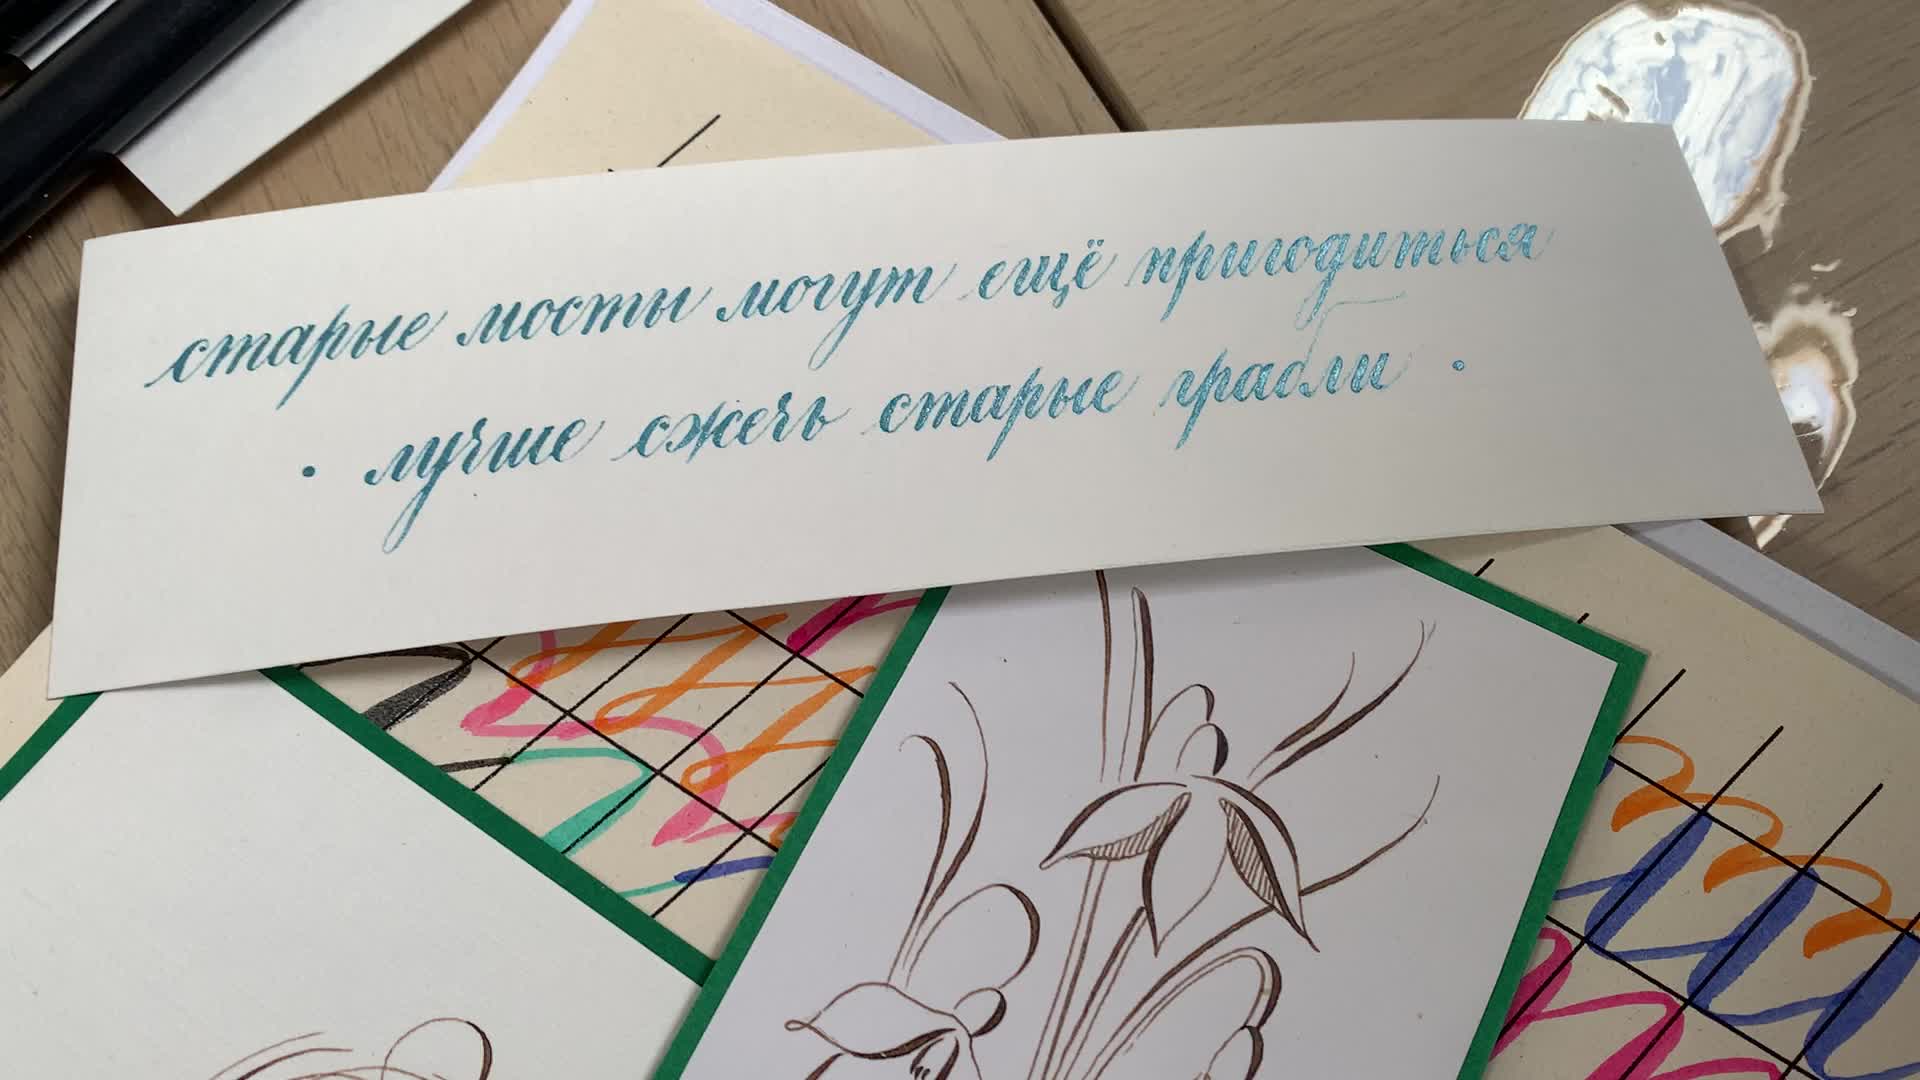 старые мосты могут ещё пригодиться
• лучше сжечь старые грабли •